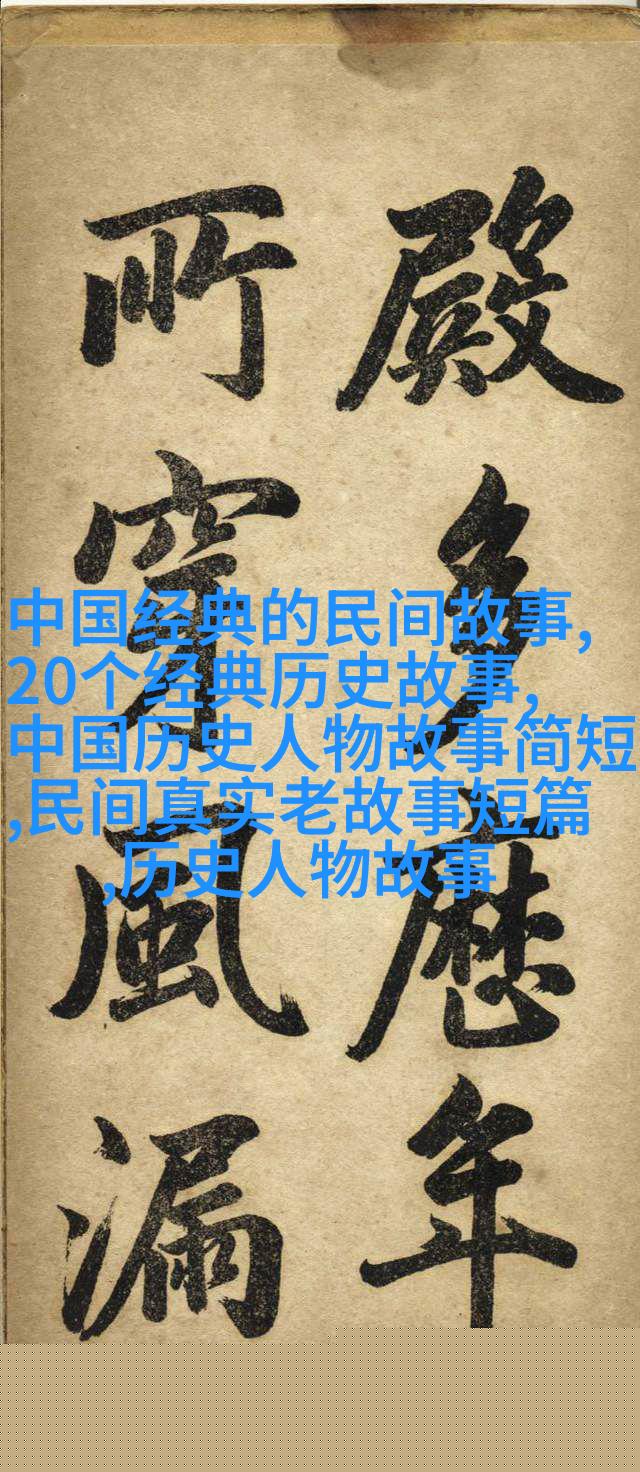 殿多歷年
所穿風漏
中国经典的民间故事,
20个经典历史故事,
中国历史人物故事简短
,民间真实老故事短篇
,历史人物故事